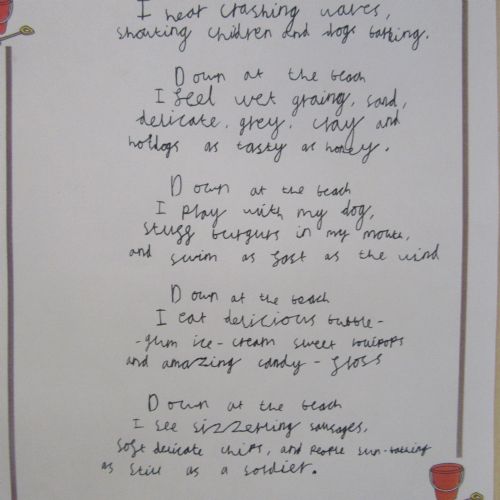 I hear crashing waves,
shouting children and dogs barking.
Down at the beach
I feel wet grainy, sand,
delicate, grey, clay and
hotdogs as tasty as honey.
Down at the beach
I play with my dog,
stuff burgurs in my mouth,
and swim as fast as the wind
Down at the beach
I eat delicious bubble-
-gum ice-cream sweet lollipops
and amazing candy-floss
Down at the beach
I see sizzerling sausages,
soft delicate chips, and people sun-bathing
as still as a soldier.